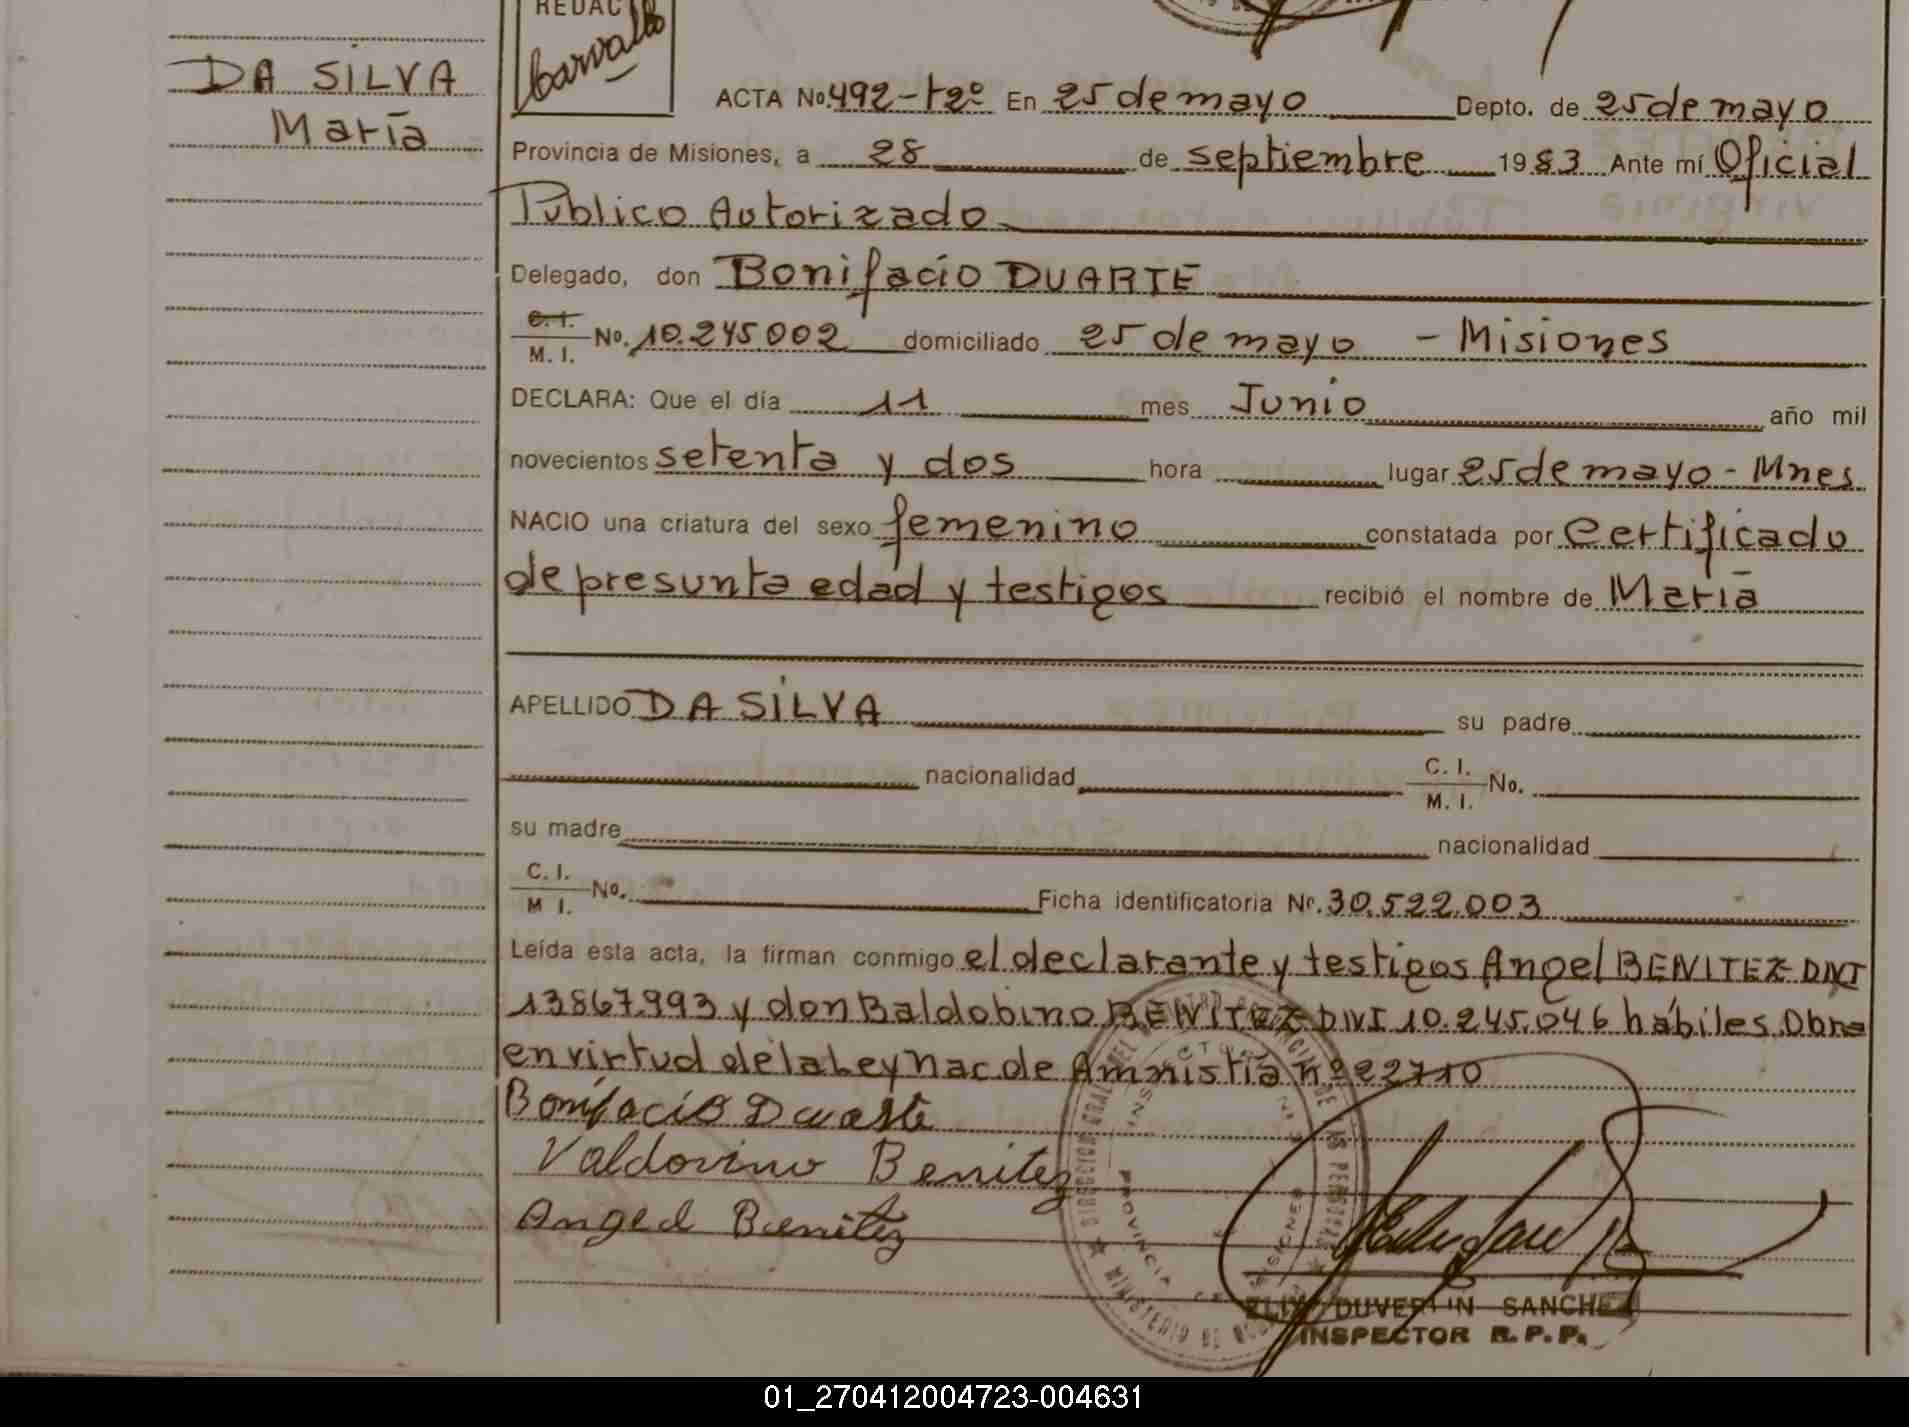 REDAC
Carvallo
DA SILVA
María
ACTA No. 492-t2º En 25 de mayo Depto. de 25 de mayo
Provincia de Misiones, a 28 de septiembre 1983 Ante mí Oficial
Público Autorizado
Delegado, don Bonifacio DUARTE
C. I.
M. I. No. 10.245.002 domiciliado 25 de mayo - Misiones
DECLARA: Que el día 11 mes Junio año mil
novecientos setenta y dos hora lugar 25 de mayo - Mnes
NACIO una criatura del sexo femenino constatada por Certificado
de presunta edad y testigos recibió el nombre de María
APELLIDO DA SILVA su padre
nacionalidad C. I. M. I. No.
su madre nacionalidad
C. I. M I. No. Ficha identificatoria Nº. 30.522.003
Leída esta acta, la firman conmigo el declarante y testigos Angel BENITEZ DNI
13867.993 y don Baldobino BENITEZ DNI 10.245.046 hábiles. Obra
en virtud de la Ley Nac de Amnistia nº 22710
Bonifacio Duarte
Valdovino Benitez
Angel Benitez
SANCHEZ
INSPECTOR R. P. P.
01_270412004723-004631